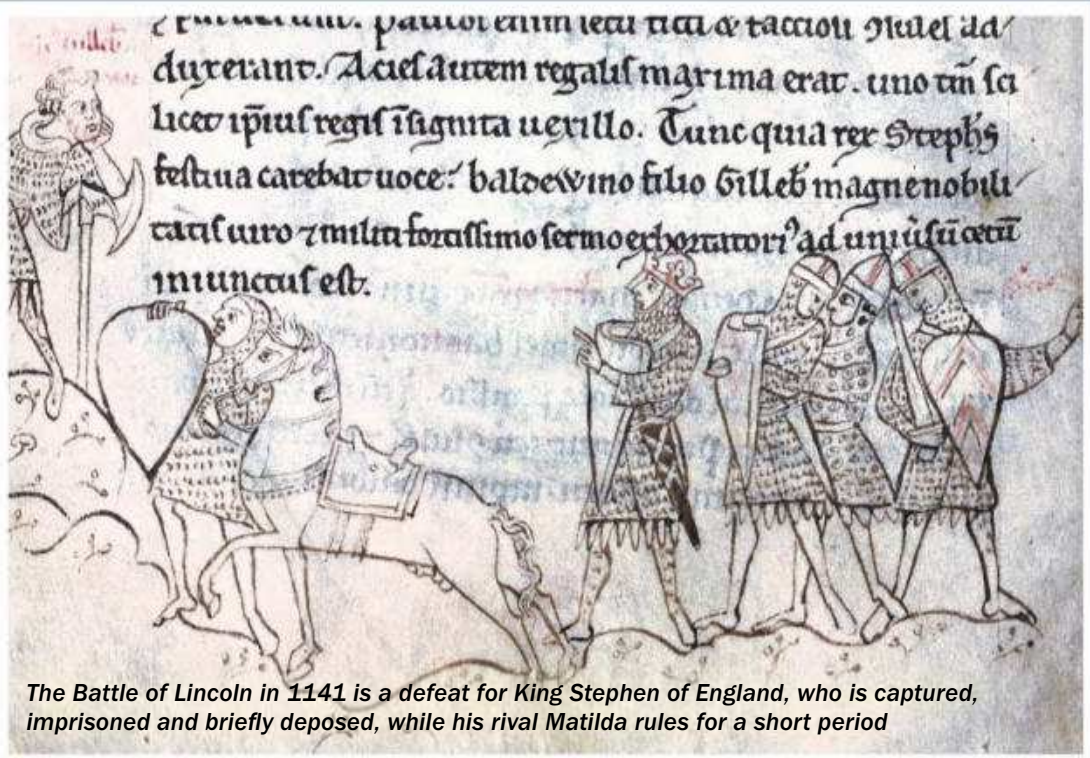 duxerant. Acies autem regalis maxima erat. uno tm̄ sci
licet ip̄ius regis īsignita uexillo. Tunc quia rex Steph̄s
festiua carebat uoce: baldewino filio Gilleb̄ magne nobili
tatis uiro ⁊ militi fortissimo sermo exhortatori⁹ ad
iniunctus est.
The Battle of Lincoln in 1141 is a defeat for King Stephen of England, who is captured,
imprisoned and briefly deposed, while his rival Matilda rules for a short period